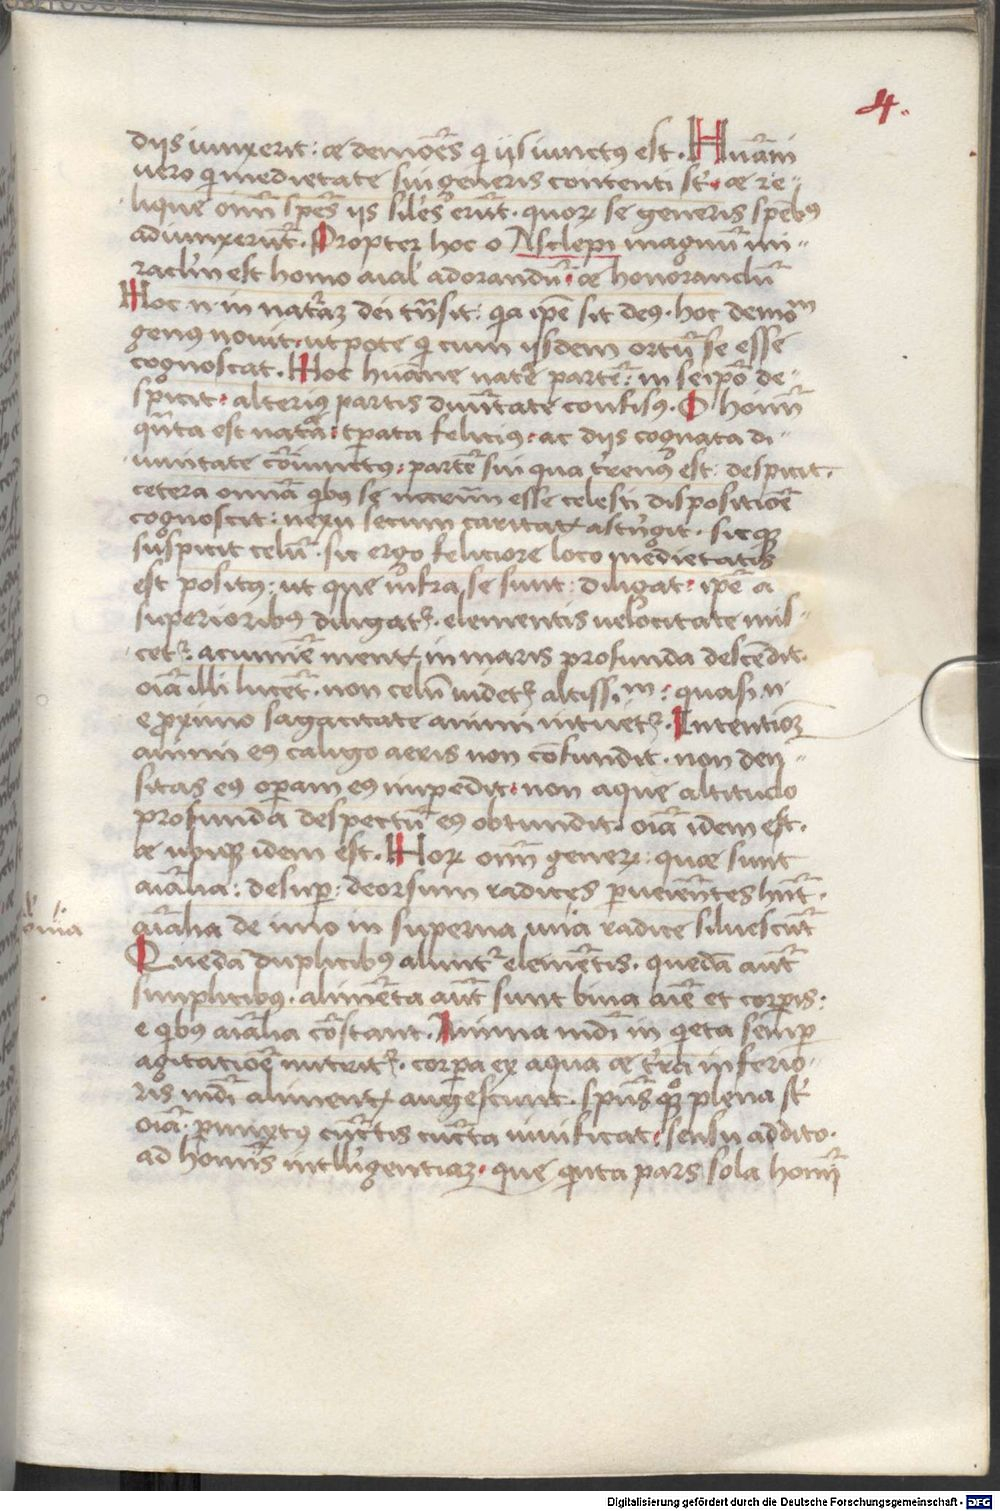 4.
diis iunxerit: & demoēs q̄ iis iunctꝰ est. Huāni
uero q̄ medietate sui generis contenti st̄. & re-
lique oīm̄ sp̄es iis sīles erūt. quoꝝ se generis sp̄ebꝰ
adiunxerūt. Propter hoc o Asclepi magnū mi-
racl̄m est homo aīal adorandū. & honorandū
Hoc n. in natꝰaꝫ dei trāsit. q̄a ip̄e sit deꝰ. hoc demoⁿᵐ
genꝰ nouit. utpote q̄ cum iisdem ortū se esse
cognoscat. Hoc huāne nat̄e partē: in seip̄o de-
spicit. alteriꝰ partis diuītate confisꝰ. O hoīm̄
qn̄ta est natꝰa. tp̄ata feliciꝰ. ac diis cognata di-
uinitate cōiunctꝰ. partē sui qua trenꝰ est: despicit.
cetera omīa qbꝰ se nccīm esse celesti dispositiōē
cognoscit: nexu secum caritatꝭ astrīgit. sicqꝫ
suspicit celū. sic ergo feliciore loco medietatis
est positꝰ: ut que infra se sunt: diligat. ip̄e a
superioribꝰ diligatꝛ. elementis uelocitate mis-
cetꝛ. acumīē mentꝭ in maris profunda descēdit.
oīa illi lucēt. non celū uidetꝛ altissiᵐ. quasi n.
e proximo sagacitate animi intuetꝛ. Intentioꝫ
animi eꝰ caligo aeris non cōfundit. non den-
sitas eꝰ operam eꝰ impedit. non aque altitudo
profunda despectū eꝰ obtundit. oīa idem est.
& ubiqꝫ idem est. Hoꝝ oīm̄ generꝝ: quae sunt
aīalia: desup̄: deorsum radices peruenīētes hn̄t.
aīalia de imo in superna uīa radice siluescūt
Quedā duplicibꝰ aluntꝛ elemētis. quedā aūt
simplicibꝰ. alimēta aūt sunt bina aīe et corp̄is.
e qbꝰ aīalia cōstant. Anima mdī in q̄eta semp̄
agitatiōē nutritꝛ. corp̄a ex aqua & tr̄ra inferio-
ris mdī alimentꝭ augescunt. sp̄us qꝫ plena st̄
oīa. permixtꝰ cūctis cūcta uiuificat. sensu addito.
ad homīs intelligentiaꝫ. que qn̄ta pars sola homī
Digitalisierung gefördert durch die Deutsche Forschungsgemeinschaft - DFG